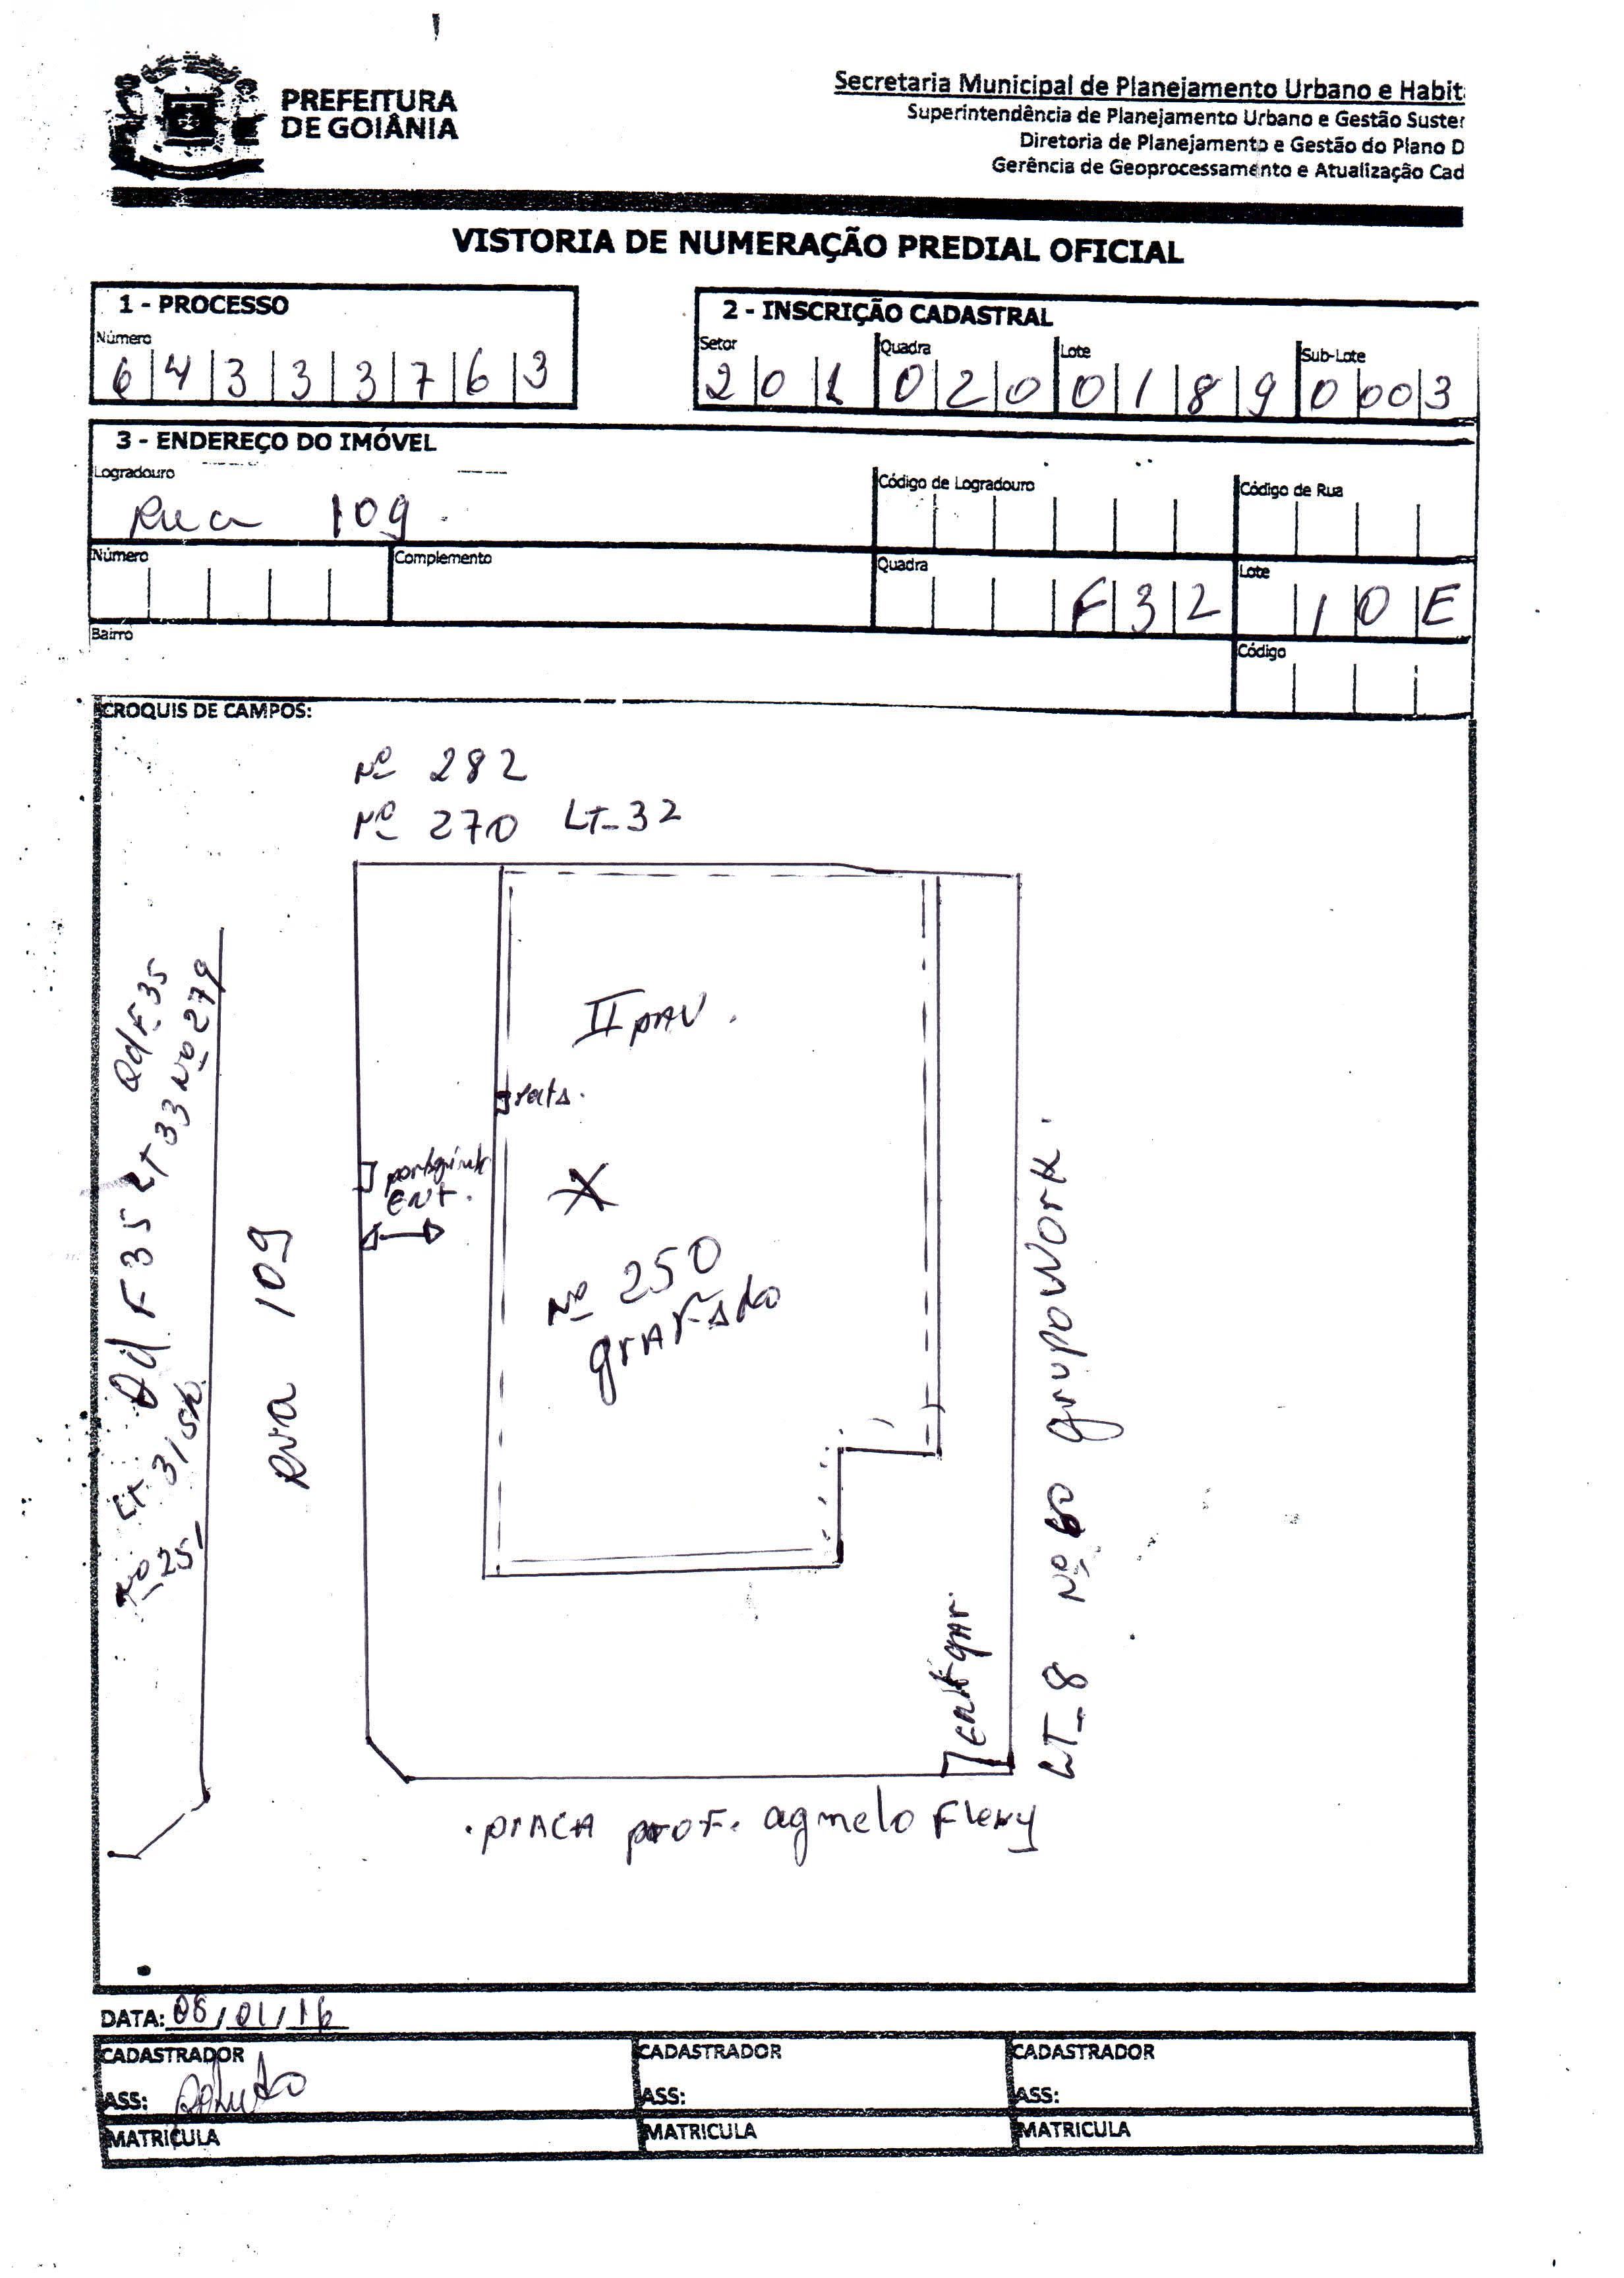 PREFEITURA
DE GOIÂNIA
Secretaria Municipal de Planejamento Urbano e Habit
Superintendência de Planejamento Urbano e Gestão Suster
Diretoria de Planejamento e Gestão do Plano D
Gerência de Geoprocessamento e Atualização Cad
VISTORIA DE NUMERAÇÃO PREDIAL OFICIAL
1 - PROCESSO
Número
6 4 3 3 3 7 6 3
2 - INSCRIÇÃO CADASTRAL
Setor Quadra Lote Sub-Lote
2 0 1 0 2 0 0 1 8 9 0 0 0 3
3 - ENDEREÇO DO IMÓVEL
Logradouro Código de Logradouro Código de Rua
Rua 109
Número Complemento Quadra Lote
F 3 2 1 0 E
Bairro Código
CROQUIS DE CAMPOS:
Nº 282
Nº 270 LT-32
Qd F35
LT 33 Nº 279
Qd F35
LT 31
Nº 251
Rua 109
II pav.
ENT.
Nº 250
grafado
LT-8 Nº 60 grupo Work.
praca prof. agnelo Fleury
DATA: 08/01/16
CADASTRADOR CADASTRADOR CADASTRADOR
ASS: ASS: ASS:
MATRICULA MATRICULA MATRICULA